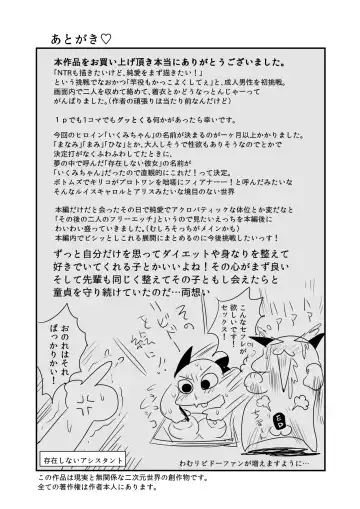 あとがき♡
本作品をお買い上げ頂き本当にありがとうございました。
「NTRも描きたいけど、純愛をまず描きたい！」
という挑戦でなおかつ「竿役もかっこよくしてぇ」と、成人男性を初挑戦。
画面内で二人を収めて絡めて、着衣とかどうなっとんじゃーって
がんばりました。（作者の頑張りは当たり前なんだけど）
1pでも1コマでもグッとくる何かがあったら幸いです。
今回のヒロイン「いくみちゃん」の名前が決まるのが一ヶ月以上かかりました。
「まなみ」「まみ」「ひな」とか、大人しそうで性欲もありそうなのでとかで
決定打がなくふわふわしてたときに、
夢の中で読んだ「存在しない彼女」の名前が
「いくみちゃん」だったので直観的にこれだ！って決定。
ボトムズでキリコがプロトワンを咄嗟にフィアナーー！と呼んだみたいな
そんなルイスキャロルとアリスみたいな境目のない世界
本編だけだと会ったその日で純愛でアクロバティックな体位とか変だなと
「その後の二人のフリーエッチ」というので見たいえっちを本編後に
わいわい盛っていきました。（むしろそっちがメインかも）
本編内でビシッとしこれる展開にまとめるのに今後挑戦したいっす！
ずっと自分だけを思ってダイエットや身なりを整えて
好きでいてくれる子とかいいよね！その心がまず良い
そして先輩も同じく整えてその子ともし会えたらと
童貞を守り続けていたのだ…両想い
こんなセフレが
欲しいです！
セックス！
おのれはそれ
ばっかりかい！
ED
存在しないアシスタント
わむリビドーファンが増えますように…
この作品は現実と無関係な二次元世界の創作物です。
全ての著作権は作者本人にあります。